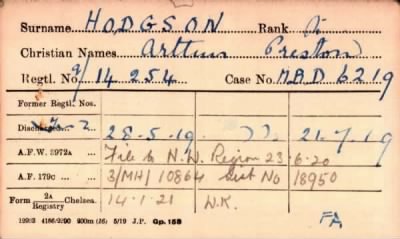 Surname HODGSON Rank
Christian Names Arthur Preston
Regtl. No. 9/14254 Case No. MBD 6219
Former Regtl. Nos.
Discharged 28.5.19. 21.7.19
A.F.W. 3972a ... File to N.W. Region 23.6.20
A.F. 179c ... 3/MH/10864 List No 18950
Form 2A Registry Chelsea. 14.1.21 W.R.
FA
12993 4186/2290 900m (26) 5/19 J.P. Gp. 158